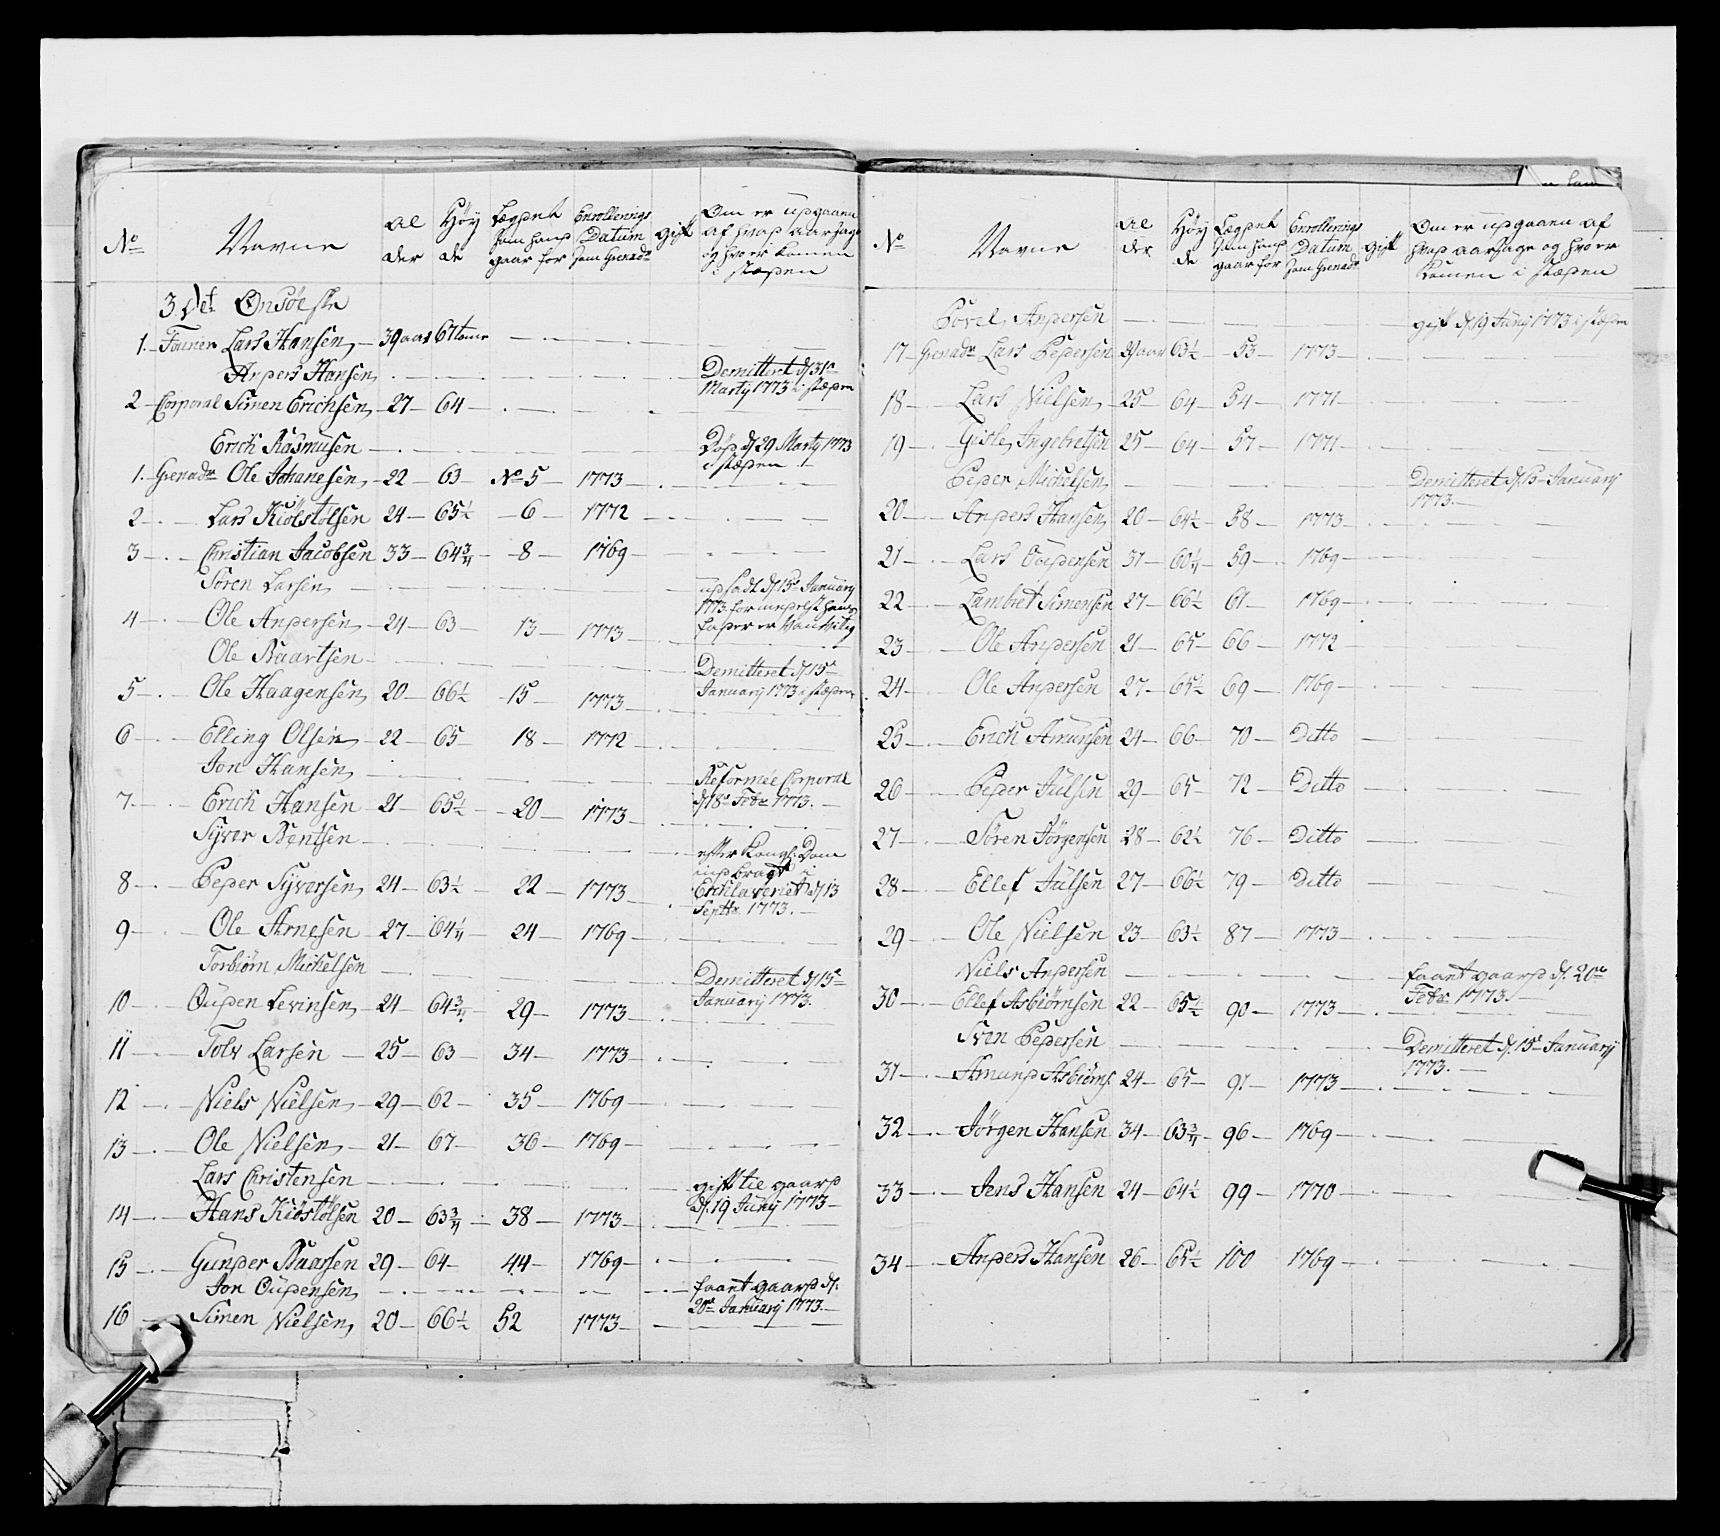 No Navne Al der Høy de Lægdet som hand gaar for Enrollerings Datum som Grenadr gift Om er udgaaen af hvad aarsage og hvo er komen i stæden
3det Onsøeske
1. Fourier Lars Hansen 39 aar 67 tome
Anders Hansen Demitteret d 31te Martij 1773 i stæden
2 Corporal Simen Erichsen 27 64
Erich Rasmusen Døde d 29 Martij 1773 i stæden
1. Grenadr Ole Johanesen 22 63 No 5 1773
2 Lars Kiølstølsen 24 65½ 6 1772
3 Christian Jacobsen 33 64¾ 8 1769
Søren Larsen udsadt d 15de Januarij 1773 formedelst hans fader er Vanvitig
4 Ole Andersen 24 63 13 1773
Ole Baartsen Demitteret d 15de Januarij 1773 i stæden
5 Ole Haagensen 20 66½ 15 1773
6 Elling Olsen 22 65 18 1772
Jon Hansen Reformee Corporal d 18de Febr 1773.
7 Erich Hansen 21 65½ 20 1773
Syver Bentsen efter Kongl. Dom indbragt i Schlaveriet d 13 Septbr 1773.
8 Peder Syversen 24 63½ 22 1773
9 Ole Arnesen 27 64¼ 24 1769
Torbiørn Michelsen Demitteret d 15de Januarij 1773.
10 Ouden Levinsen 24 64¾ 29 1773
11 Tolv Larsen 25 63 34 1773
12 Niels Nielsen 29 62 35 1769
13 Ole Nielsen 21 67 36 1769
Lars Christensen gift til gaard d. 19 Junij 1773
14 Hans Kiøstølsen 20 63¾ 38 1773
15 Gunder Baarsen 29 64 44 1769
Jon Oudensen faaet gaard d. 20de Januarij 1773.
16 Simen Nielsen 20 66½ 52 1773
No Navne Al der Høy de Lægdet som hand gaar for Enrollerings Datum som Grenadr gift Om er udgaaen af hvad aarsage og hvo er komen i stæden
Povel Andersen gift d. 19 Junij 1773 i stæden
17 Grenadr Lars Pedersen aar 63½ 53 1773
18 Lars Nielsen 25 64 54 1771
19 Gisle Ingebretsen 25 64 57 1771
Peder Michelsen Demitteret d. 15 Januarij 1773.
20 Anders Hansen 20 64½ 58 1773
21 Lars Oudensen 31 60¼ 59 1769
22 Lambret Simensen 27 66½ 61 1769
23 Ole Andersen 21 65 66 1772
24 Ole Andersen 27 65½ 69 1769
25 Erich Amundsen 24 66 70 Ditto
26 Peder Julsen 29 65 72 Ditto
27 Søren Jørgensen 28 62½ 76 Ditto
28 Ellef Julsen 27 66½ 79 Ditto
29 Ole Nielsen 23 63½ 87 1773
Niels Andersen faaet gaard d. 20de Febr 1773.
30 Ellef Asbiørnsen 22 65½ 90 1773
Sven Pedersen Demitteret d. 15de Januarij 1773.
31 Amund Asbiørns. 24 65 91 1773
32 Jørgen Hansen 34 63¾ 96 1769
33 Jens Hansen 24 64½ 99 1770
34 Anders Hansen 26 65½ 100 1769